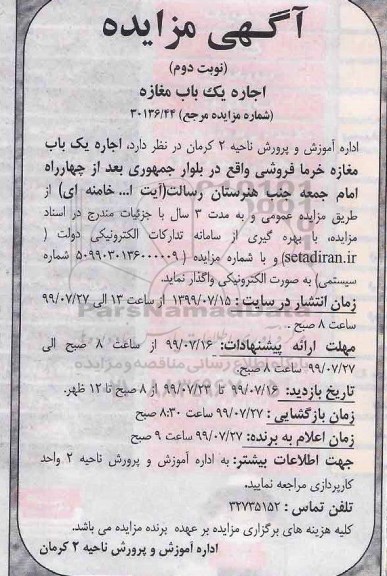 آگهی مزایده
(نوبت دوم)
اجاره یک باب مغازه
(شماره مزایده مرجع) ۳۰۱۳۶/۴۴
اداره آموزش و پرورش ناحیه ۲ کرمان در نظر دارد، اجاره یک باب
مغازه خرما فروشی واقع در بلوار جمهوری بعد از چهارراه
امام جمعه جنب هنرستان رسالت(آیت ا... خامنه ای) از
طریق مزایده عمومی و به مدت ۳ سال با جزئیات مندرج در اسناد
مزایده، با بهره گیری از سامانه تدارکات الکترونیکی دولت (
setadiran.ir) و با شماره مزایده ( ۵۰۹۹۰۳۰۱۳۶۰۰۰۰۰۹ شماره
سیستمی) به صورت الکترونیکی واگذار نماید.
زمان انتشار در سایت : ۱۳۹۹/۰۷/۱۵ از ساعت ۱۳ الی ۹۹/۰۷/۲۷
ساعت ۸ صبح .
مهلت ارائه پیشنهادات: ۹۹/۰۷/۱۶ از ساعت ۸ صبح الی
۹۹/۰۷/۲۷ ساعت ۸ صبح.
تاریخ بازدید: ۹۹/۰۷/۱۶ تا ۹۹/۰۷/۲۲ از ۸ صبح تا ۱۲ ظهر.
زمان بازگشایی : ۹۹/۰۷/۲۷ ساعت ۸:۳۰ صبح
زمان اعلام به برنده: ۹۹/۰۷/۲۷ ساعت ۹ صبح
جهت اطلاعات بیشتر: به اداره آموزش و پرورش ناحیه ۲ واحد
کارپردازی مراجعه نمایید.
تلفن تماس : ۳۲۷۳۵۱۵۲
کلیه هزینه های برگزاری مزایده بر عهده برنده مزایده می باشد.
اداره آموزش و پرورش ناحیه ۲ کرمان
ParsNamadData